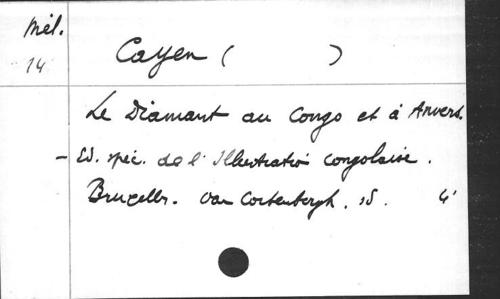 Mél.
14
Cayen ( )
Le Diamant au Congo et à Anvers.
- Ed. spéc. de l'Illustration congolaise.
Bruxelles. Van Cortenbergh. sd. 4°